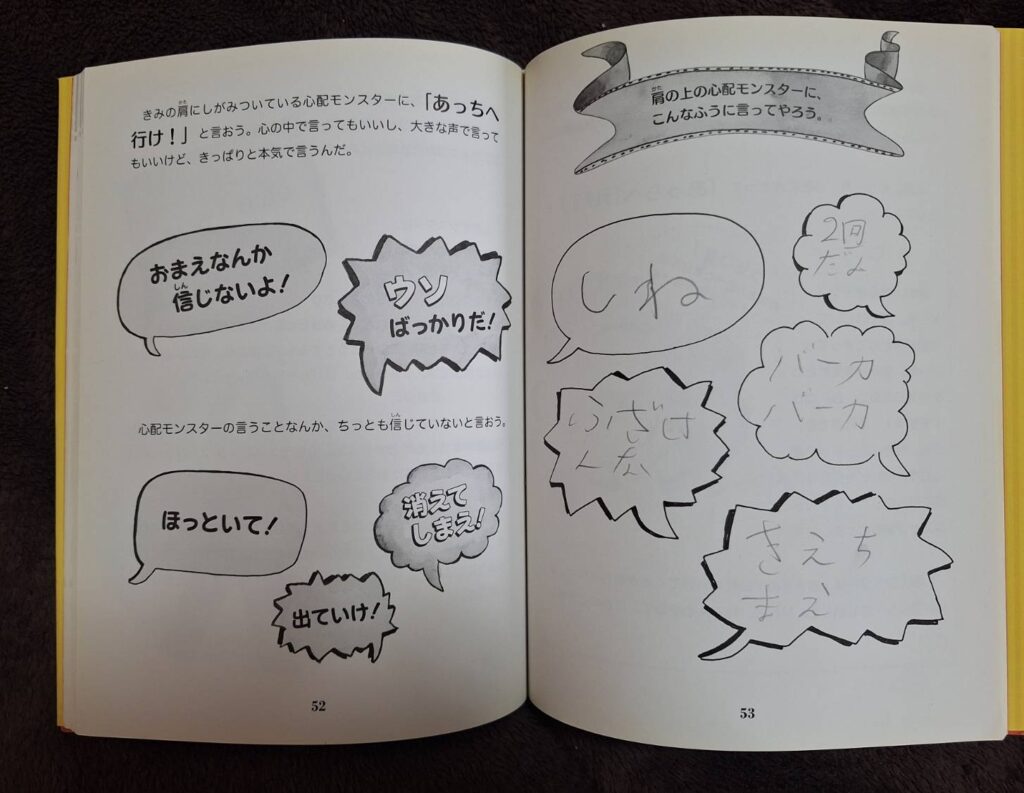 きみの肩にしがみついている心配モンスターに、「あっちへ
行け！」と言おう。心の中で言ってもいいし、大きな声で言って
もいいけど、きっぱりと本気で言うんだ。
おまえなんか
信じないよ！
ウソ
ばっかりだ！
心配モンスターの言うことなんか、ちっとも信じていないと言おう。
ほっといて！
消えて
しまえ！
出ていけ！
52
肩の上の心配モンスターに、
こんなふうに言ってやろう。
しね
2回
だよ
バーカ
バーカ
ふざけ
んな
きえち
まえ
53